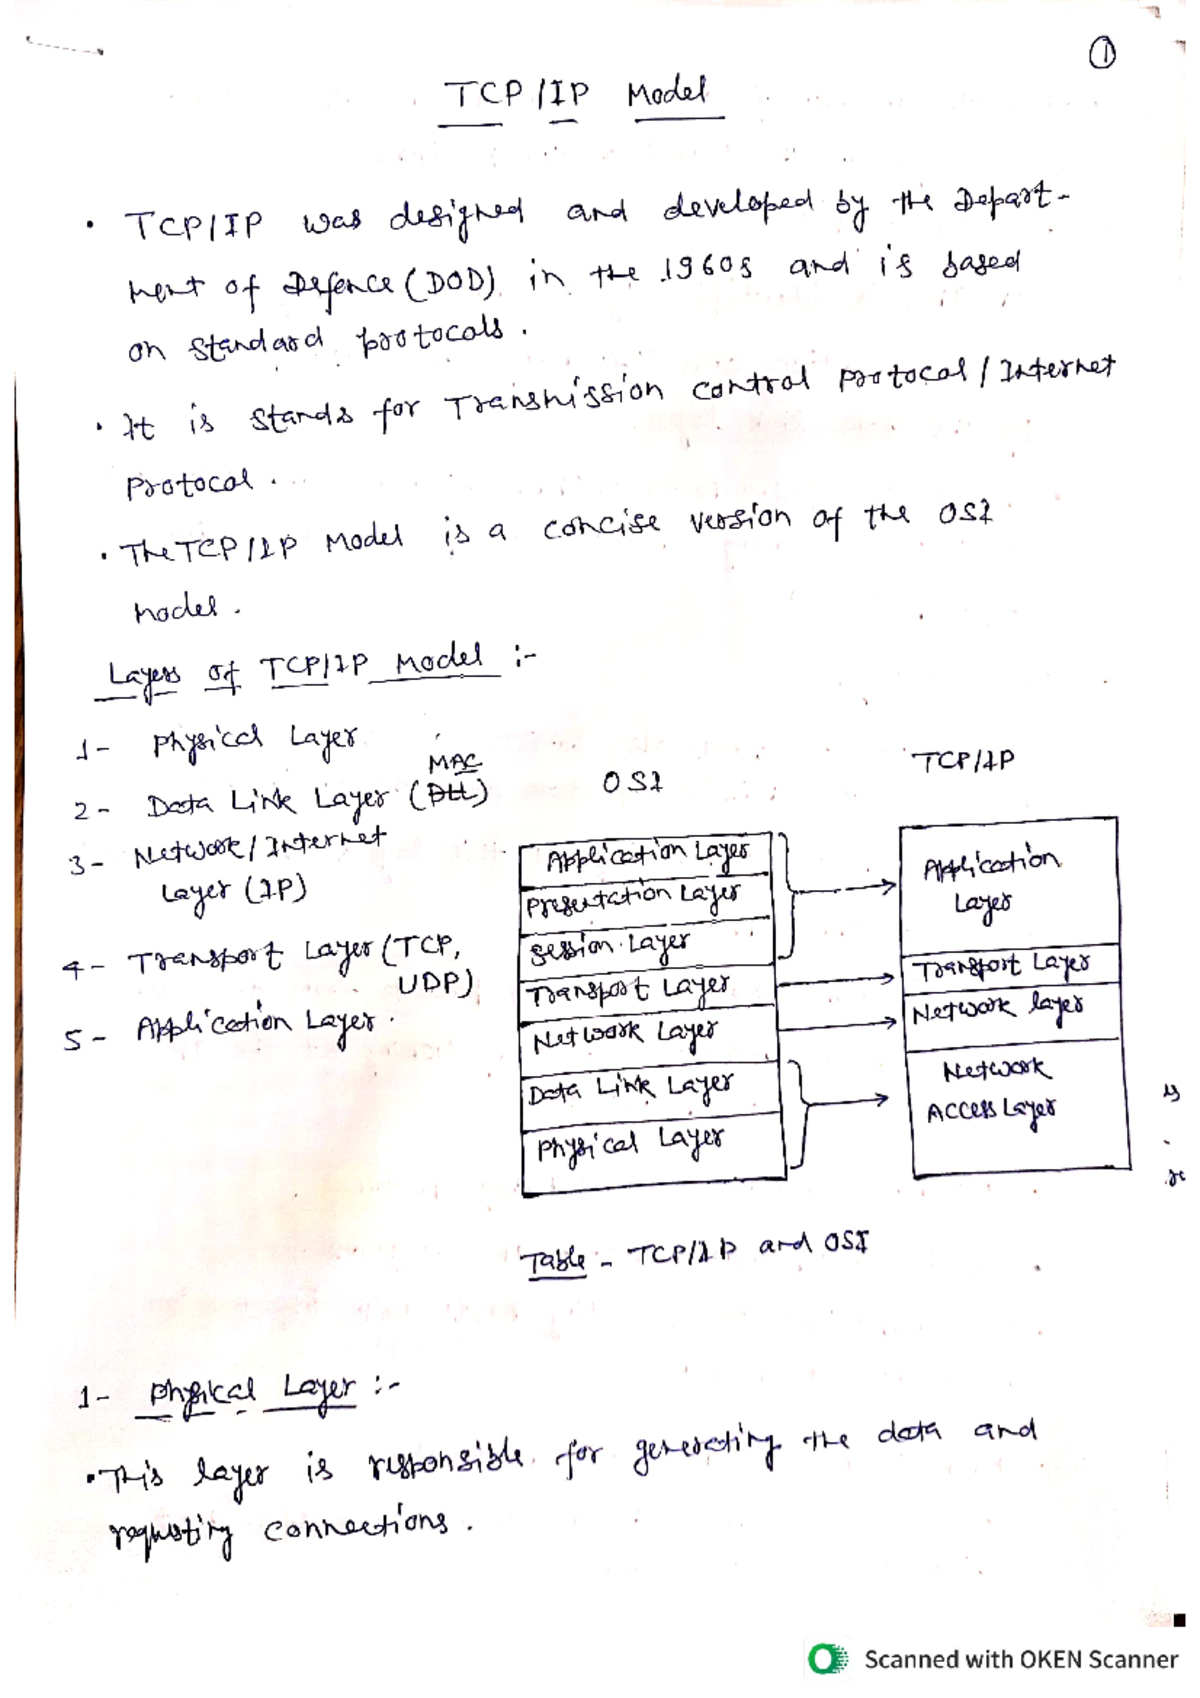 ①
TCP/IP Model
• TCP/IP was designed and developed by the Depart-
ment of Defence (DOD) in the 1960s and is based
on standard protocals.
• It is stands for Transmission control protocal / Internet
Protocal.
• The TCP/IP Model is a concise version of the OSI
model.
Layers of TCP/IP Model :-
1- Physical Layer
2- Data Link Layer (MAC DLL)
3- Network/Internet
Layer (IP)
4- Transport Layer (TCP,
UDP)
5- Application Layer.
OSI
Application Layer
Presentation Layer
Session Layer
Transport Layer
Network Layer
Data Link Layer
Physical Layer
TCP/IP
Application
Layer
Transport Layer
Network layer
Network
Access Layer
Table - TCP/IP and OSI
1- Physical Layer :-
• This layer is responsible for generating the data and
requesting connections.
Scanned with OKEN Scanner